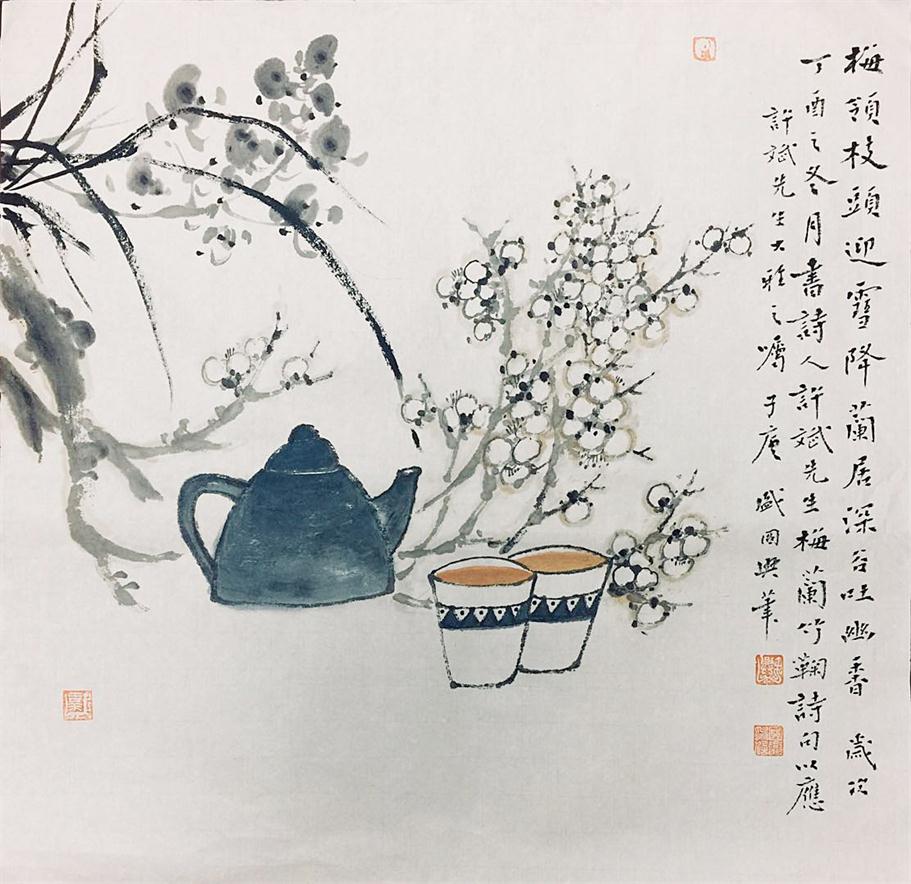 梅領枝頭迎雪降蘭居深谷吐幽香 歲次
丁酉之冬月書詩人許斌先生梅蘭竹鞠詩句以應
許斌先生大雅之囑子唐 盛國興筆